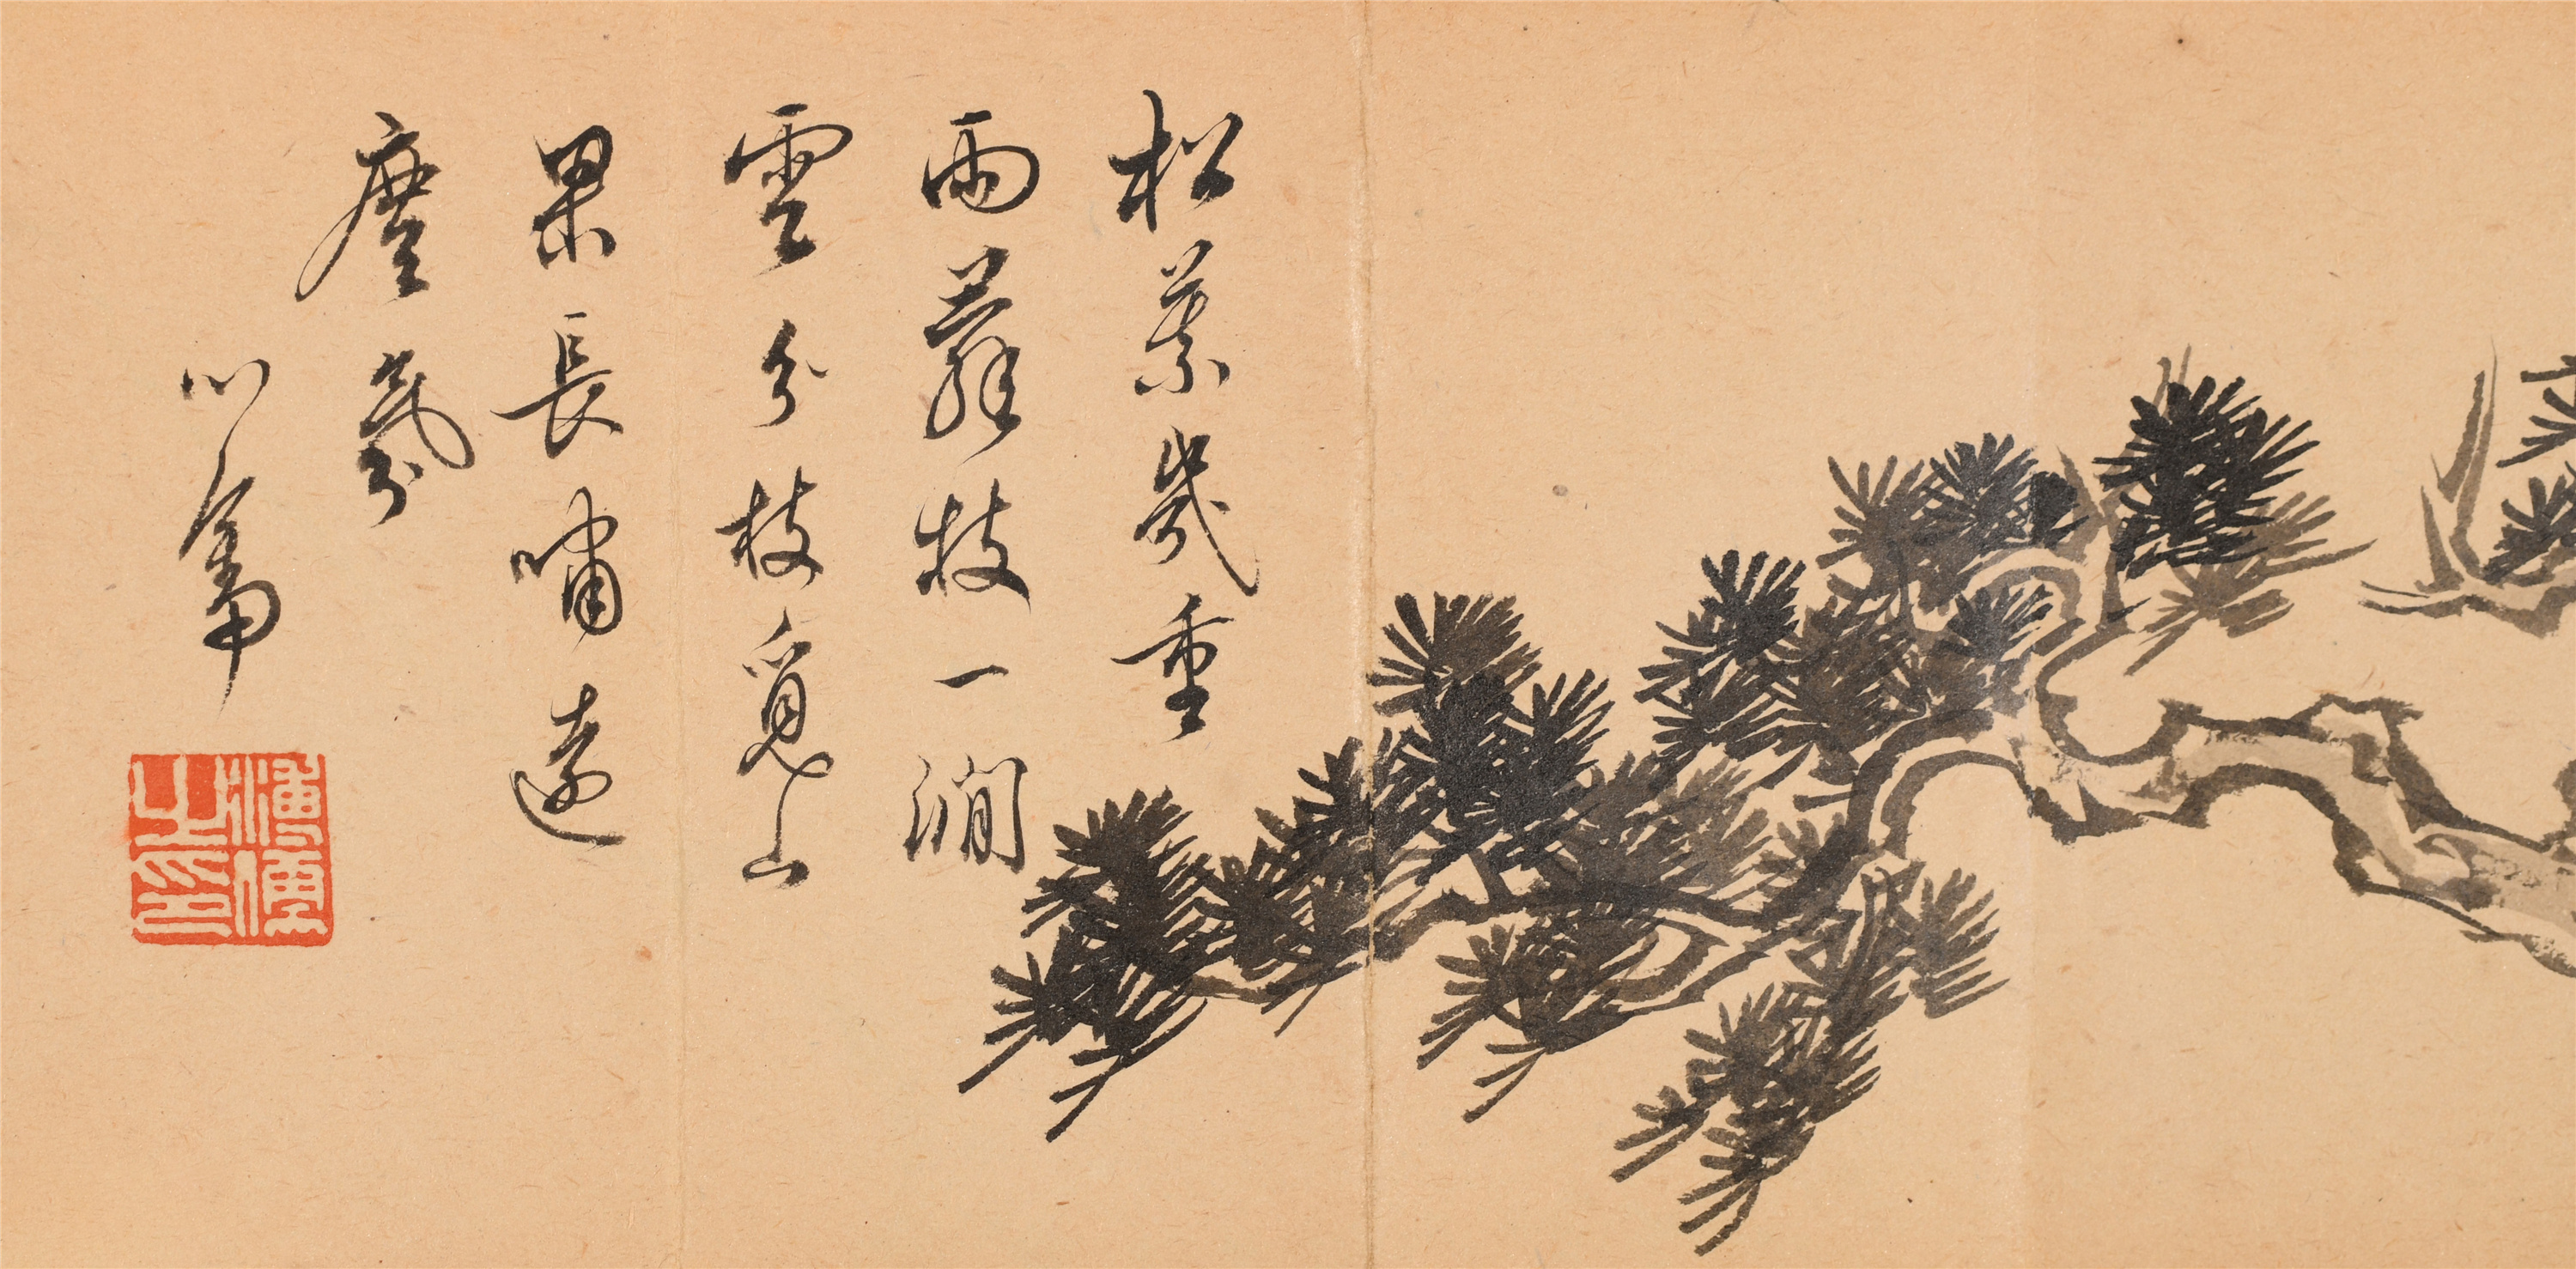 松葉幾重
雨蘿枝一澗
雲分枝覓山
果長嘯遠
塵氛
心畬
溥儒之印